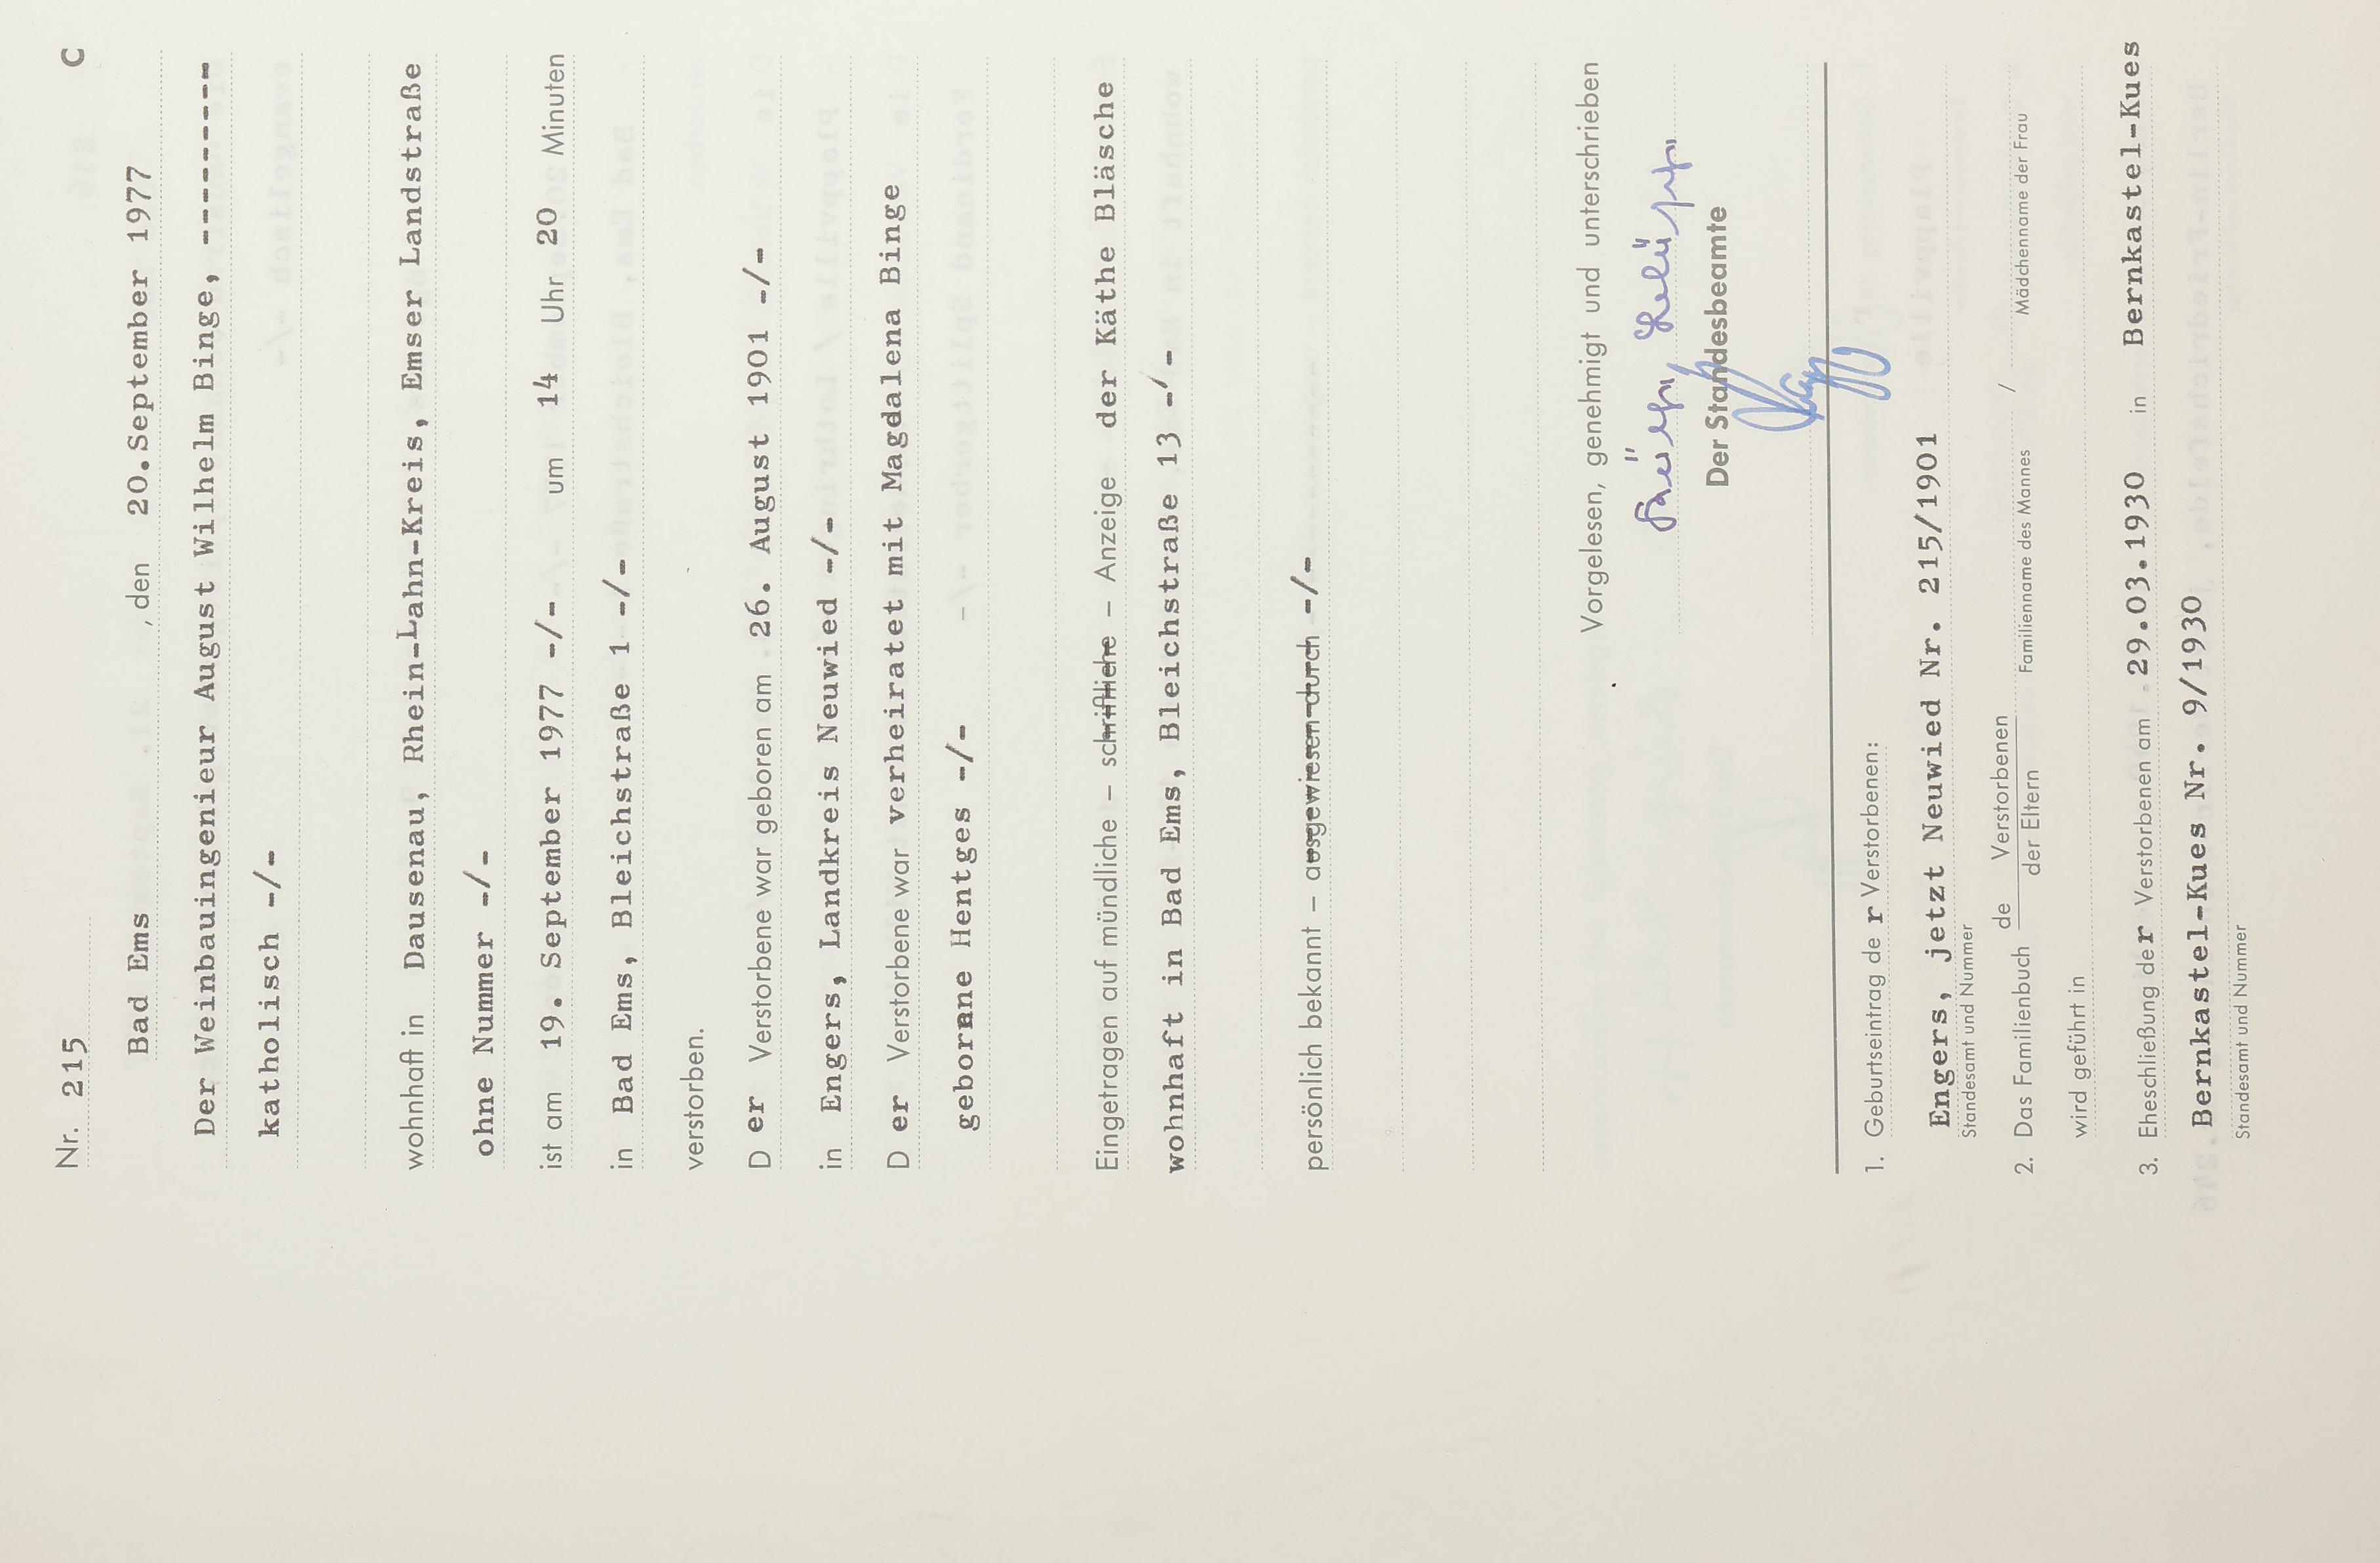 Nr. 215 C
Bad Ems , den 20.September 1977
Der Weinbauingenieur August Wilhelm Binge, ---------
katholisch -/-
wohnhaft in Dausenau, Rhein-Lahn-Kreis, Emser Landstraße
ohne Nummer -/-
ist am 19. September 1977 -/- um 14 Uhr 20 Minuten
in Bad Ems, Bleichstraße 1 -/-
verstorben.
D er Verstorbene war geboren am 26. August 1901 -/-
in Engers, Landkreis Neuwied -/-
D er Verstorbene war verheiratet mit Magdalena Binge
geborne Hentges -/-
Eingetragen auf mündliche – schriftliche – Anzeige der Käthe Bläsche
wohnhaft in Bad Ems, Bleichstraße 13 -/-
persönlich bekannt – ausgewiesen durch -/-
Vorgelesen, genehmigt und unterschrieben
Der Standesbeamte
1. Geburtseintrag de r Verstorbenen:
Engers, jetzt Neuwied Nr. 215/1901
Standesamt und Nummer
2. Das Familienbuch de Verstorbenen der Eltern / Familienname des Mannes Mädchenname der Frau
wird geführt in
3. Eheschließung der Verstorbenen am 29.03.1930 in Bernkastel-Kues
Bernkastel-Kues Nr. 9/1930
Standesamt und Nummer